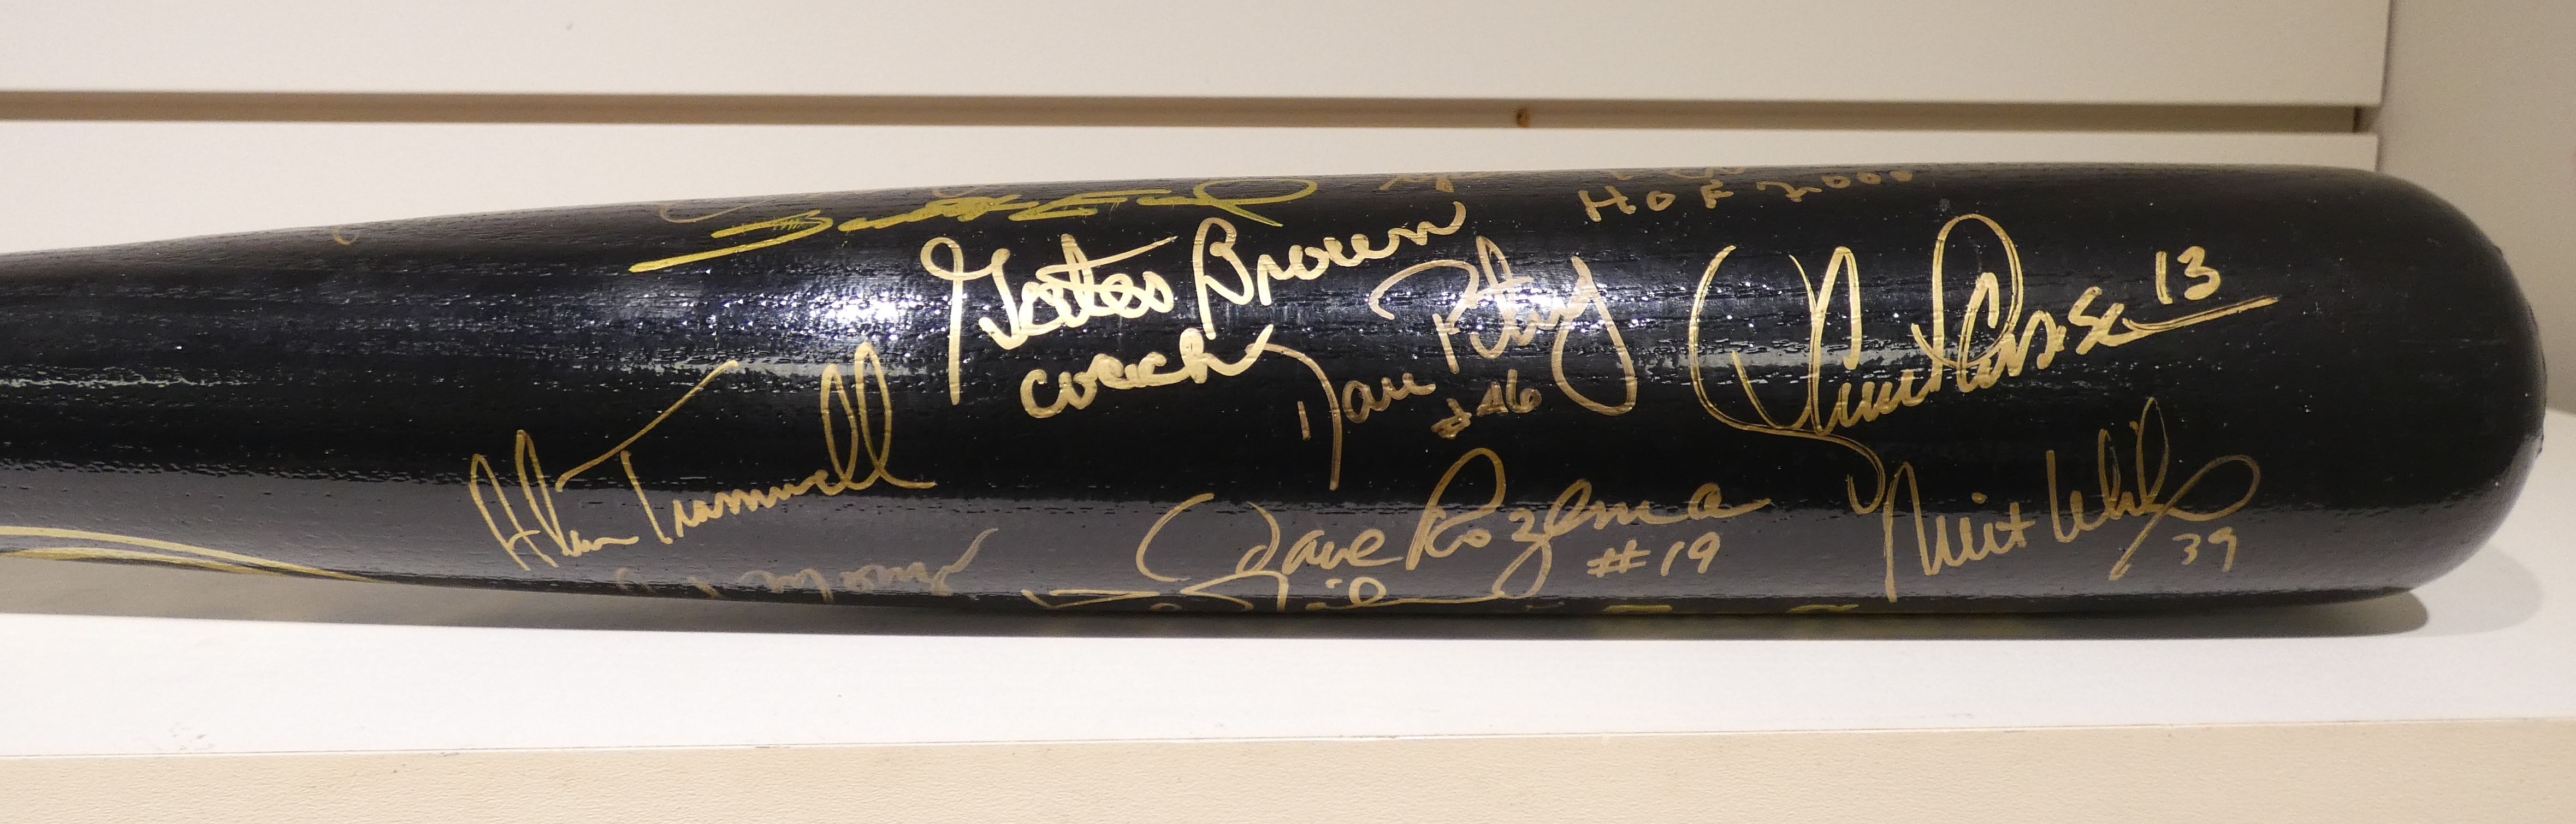 HOF 2000
Gates Brown
coach
Dan Petry
#46
Lance Parrish 13
Alan Trammell
Dave Rozema
#19
Milt Wilcox
39